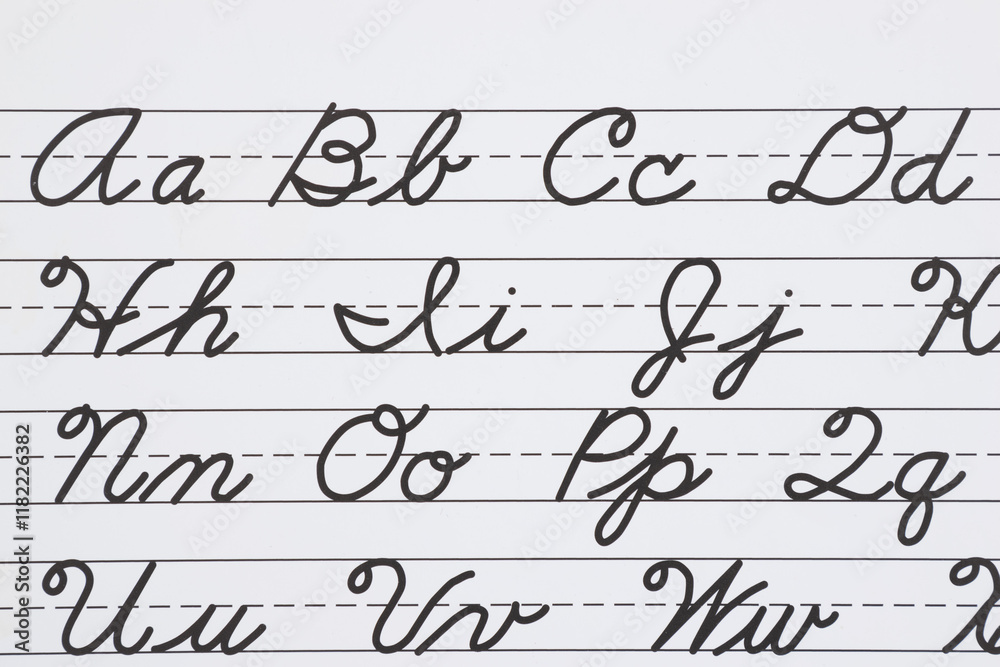 Aa Bb Cc Dd
Hh Ii Jj K
Nn Oo Pp Qq
Uu Vv Ww X
Adobe Stock | #1182226382